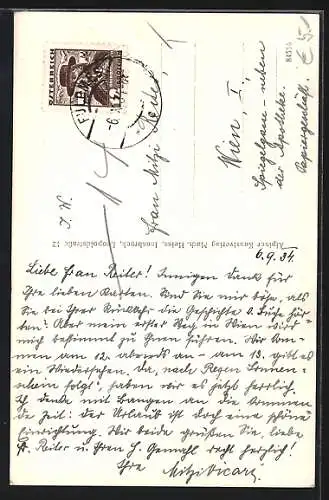 ÖSTERREICH
Frau Mitzi Reiter
Wien, I.
Spiegelgasse - neben
der Apotheke.
Papiergeschäft.
J. W.
84514
Alpiner Kunstverlag Mich. Innsbruck, Leopoldstraße 12
6.9.34
Liebe Frau Reiter! Innigen Dank für
Ihre lieben Karten. Sind Sie mir böse, als
Sie bei Ihrer Rückkehr die Geschichte
Aber mein erster Weg in Wien wird
mich bestimmt zu Ihnen führen. Wir kom-
men am 12. abends an - am 13. gibt es
ein Wiedersehen. Da, nach Regen Sonnen-
schein folgt, haben wir es jetzt herrlich.
Ich denke mit Bangen an die kommen-
de Zeit: der Urlaub ist doch eine schöne
Einrichtung. Wir beide grüßen Sie, liebe
Fr. Reiter u. Ihren H. Gemahl recht herzlich!
Ihre Mitzi